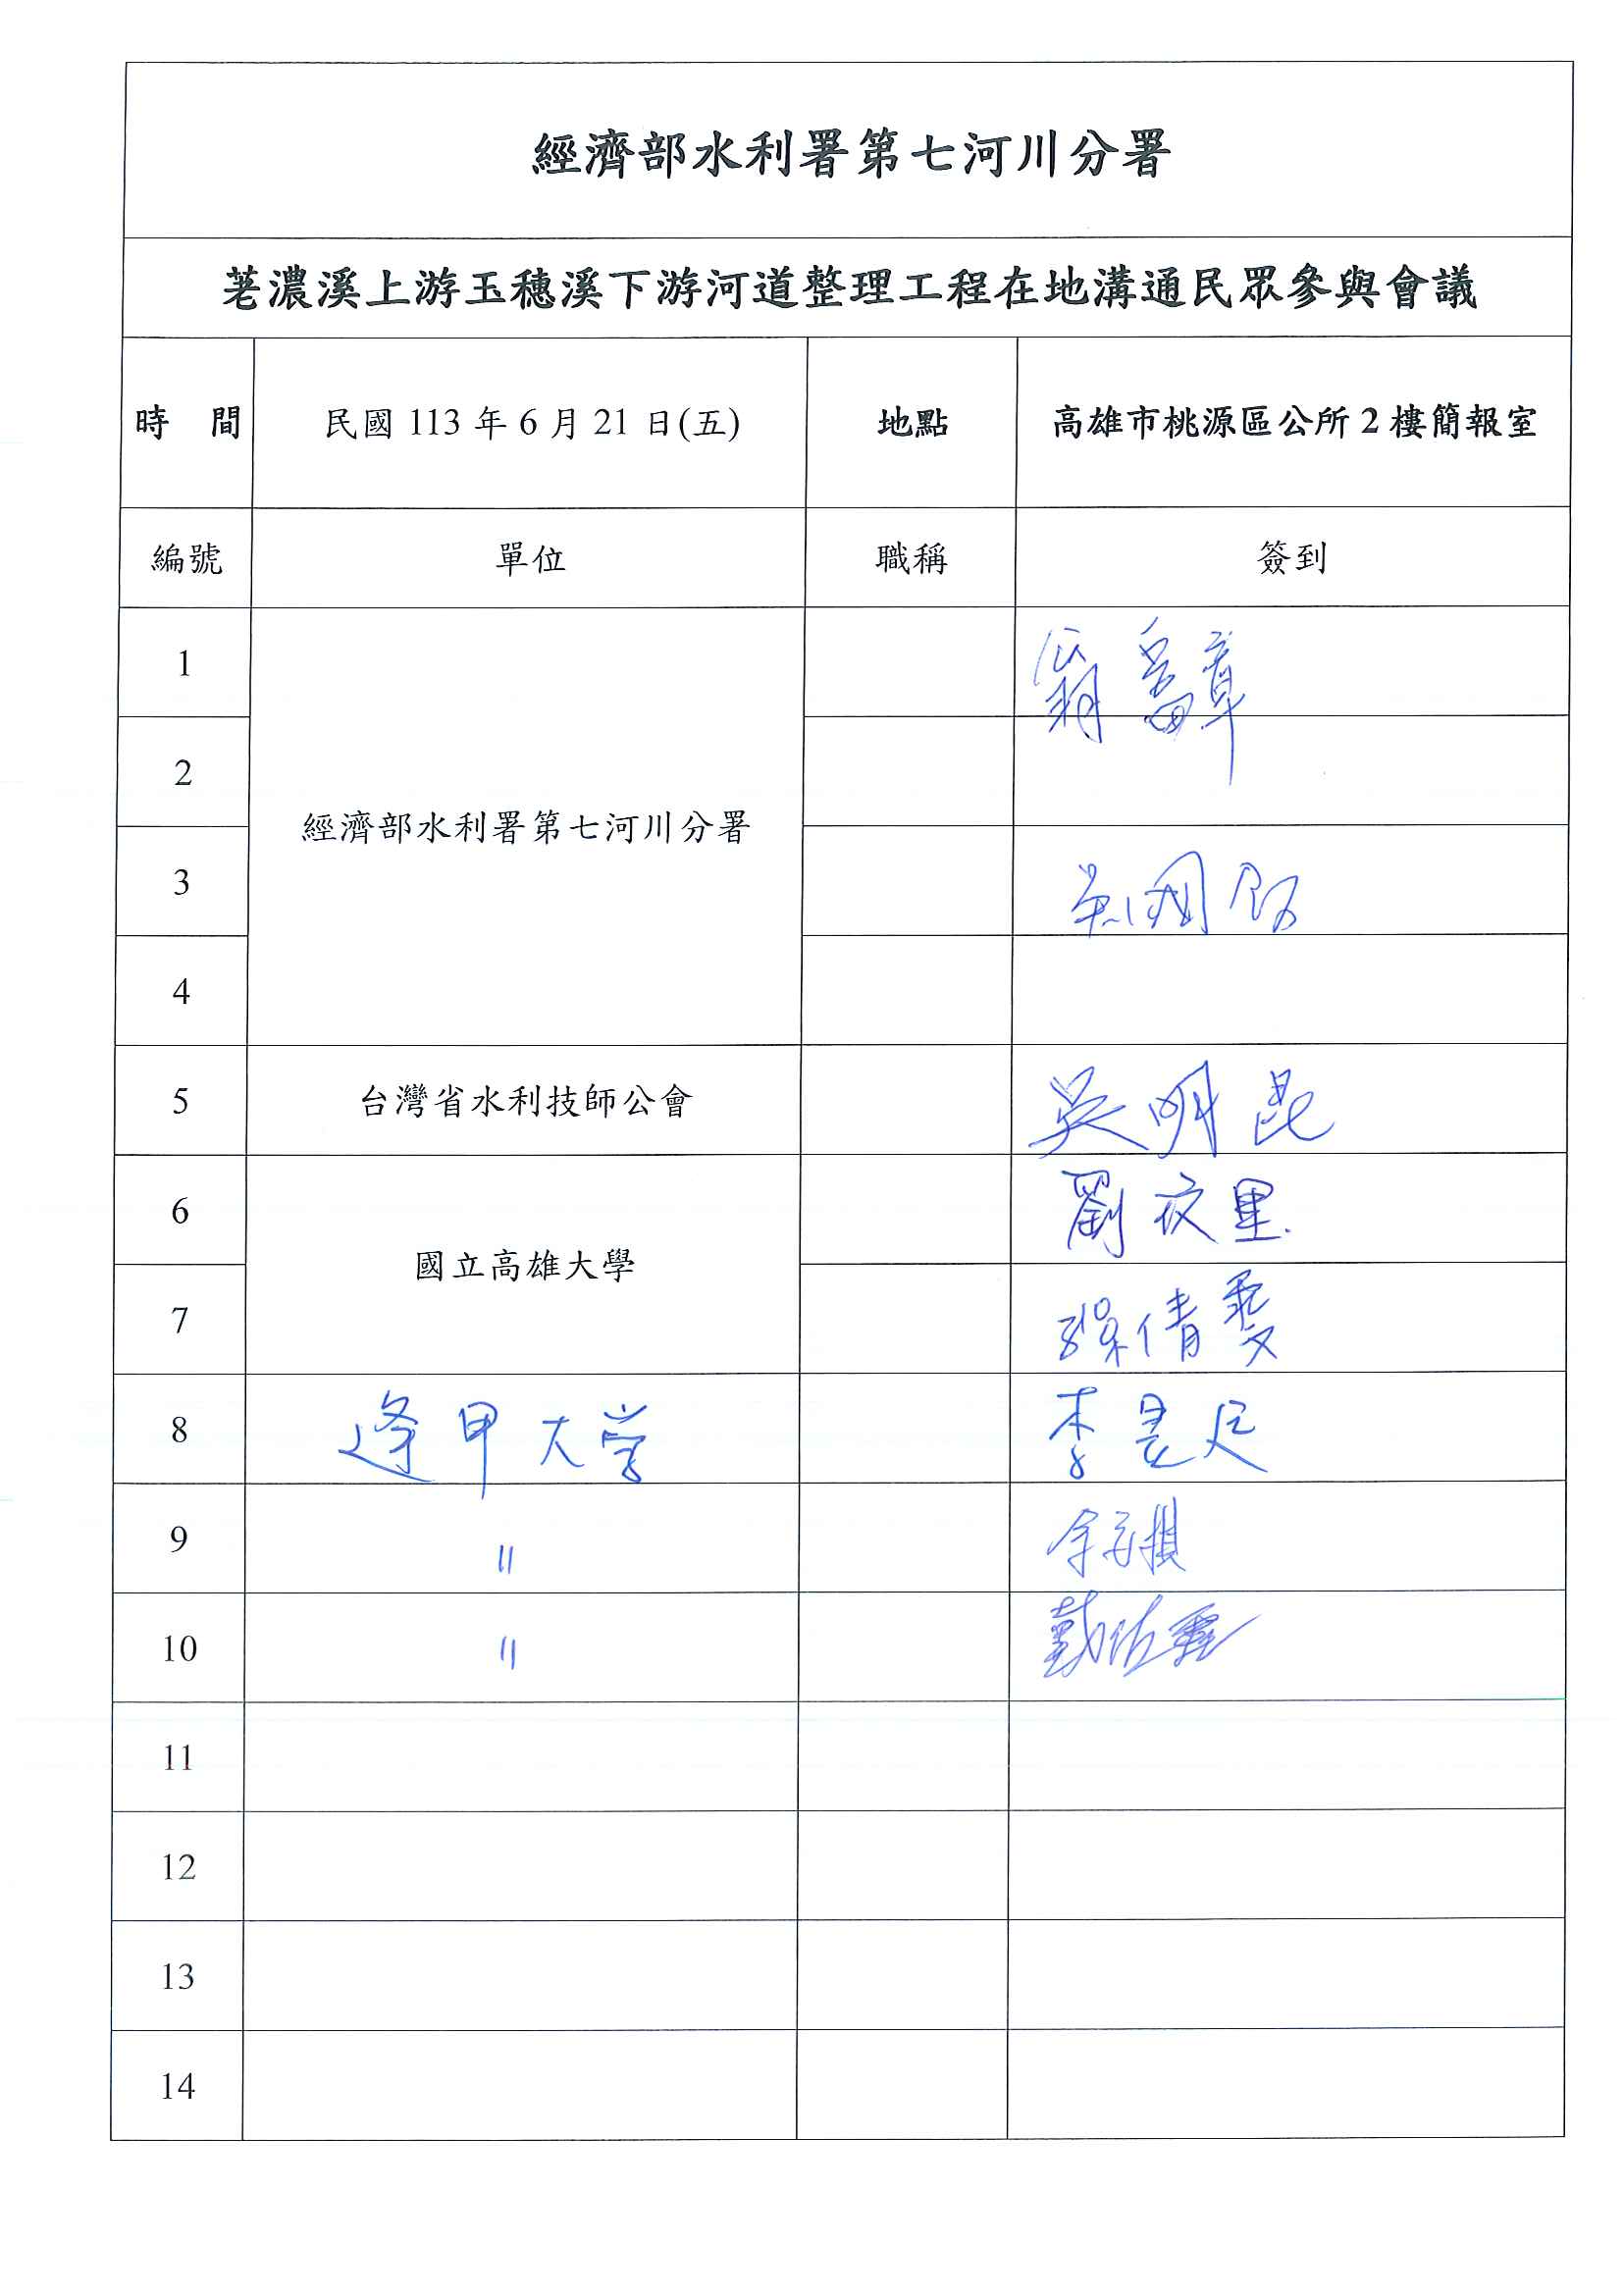 經濟部水利署第七河川分署
荖濃溪上游玉穗溪下游河道整理工程在地溝通民眾參與會議
時 間 民國 113 年 6 月 21 日(五) 地點 高雄市桃源區公所 2 樓簡報室
編號 單位 職稱 簽到
1
2
經濟部水利署第七河川分署
3
4
5 台灣省水利技師公會 吳明昆
6 劉夜里
國立高雄大學
7 孫倩雯
8 逢甲大学 李
9 〃 余
10 〃 戴佑
11
12
13
14